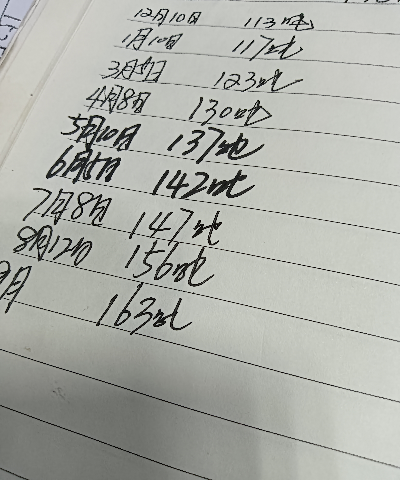 12月10日 113吨
1月10日 117吨
3月5日 123吨
4月8日 130吨
5月10日 137吨
6月5日 142吨
7月8日 147吨
8月12日 156吨
9月 163吨